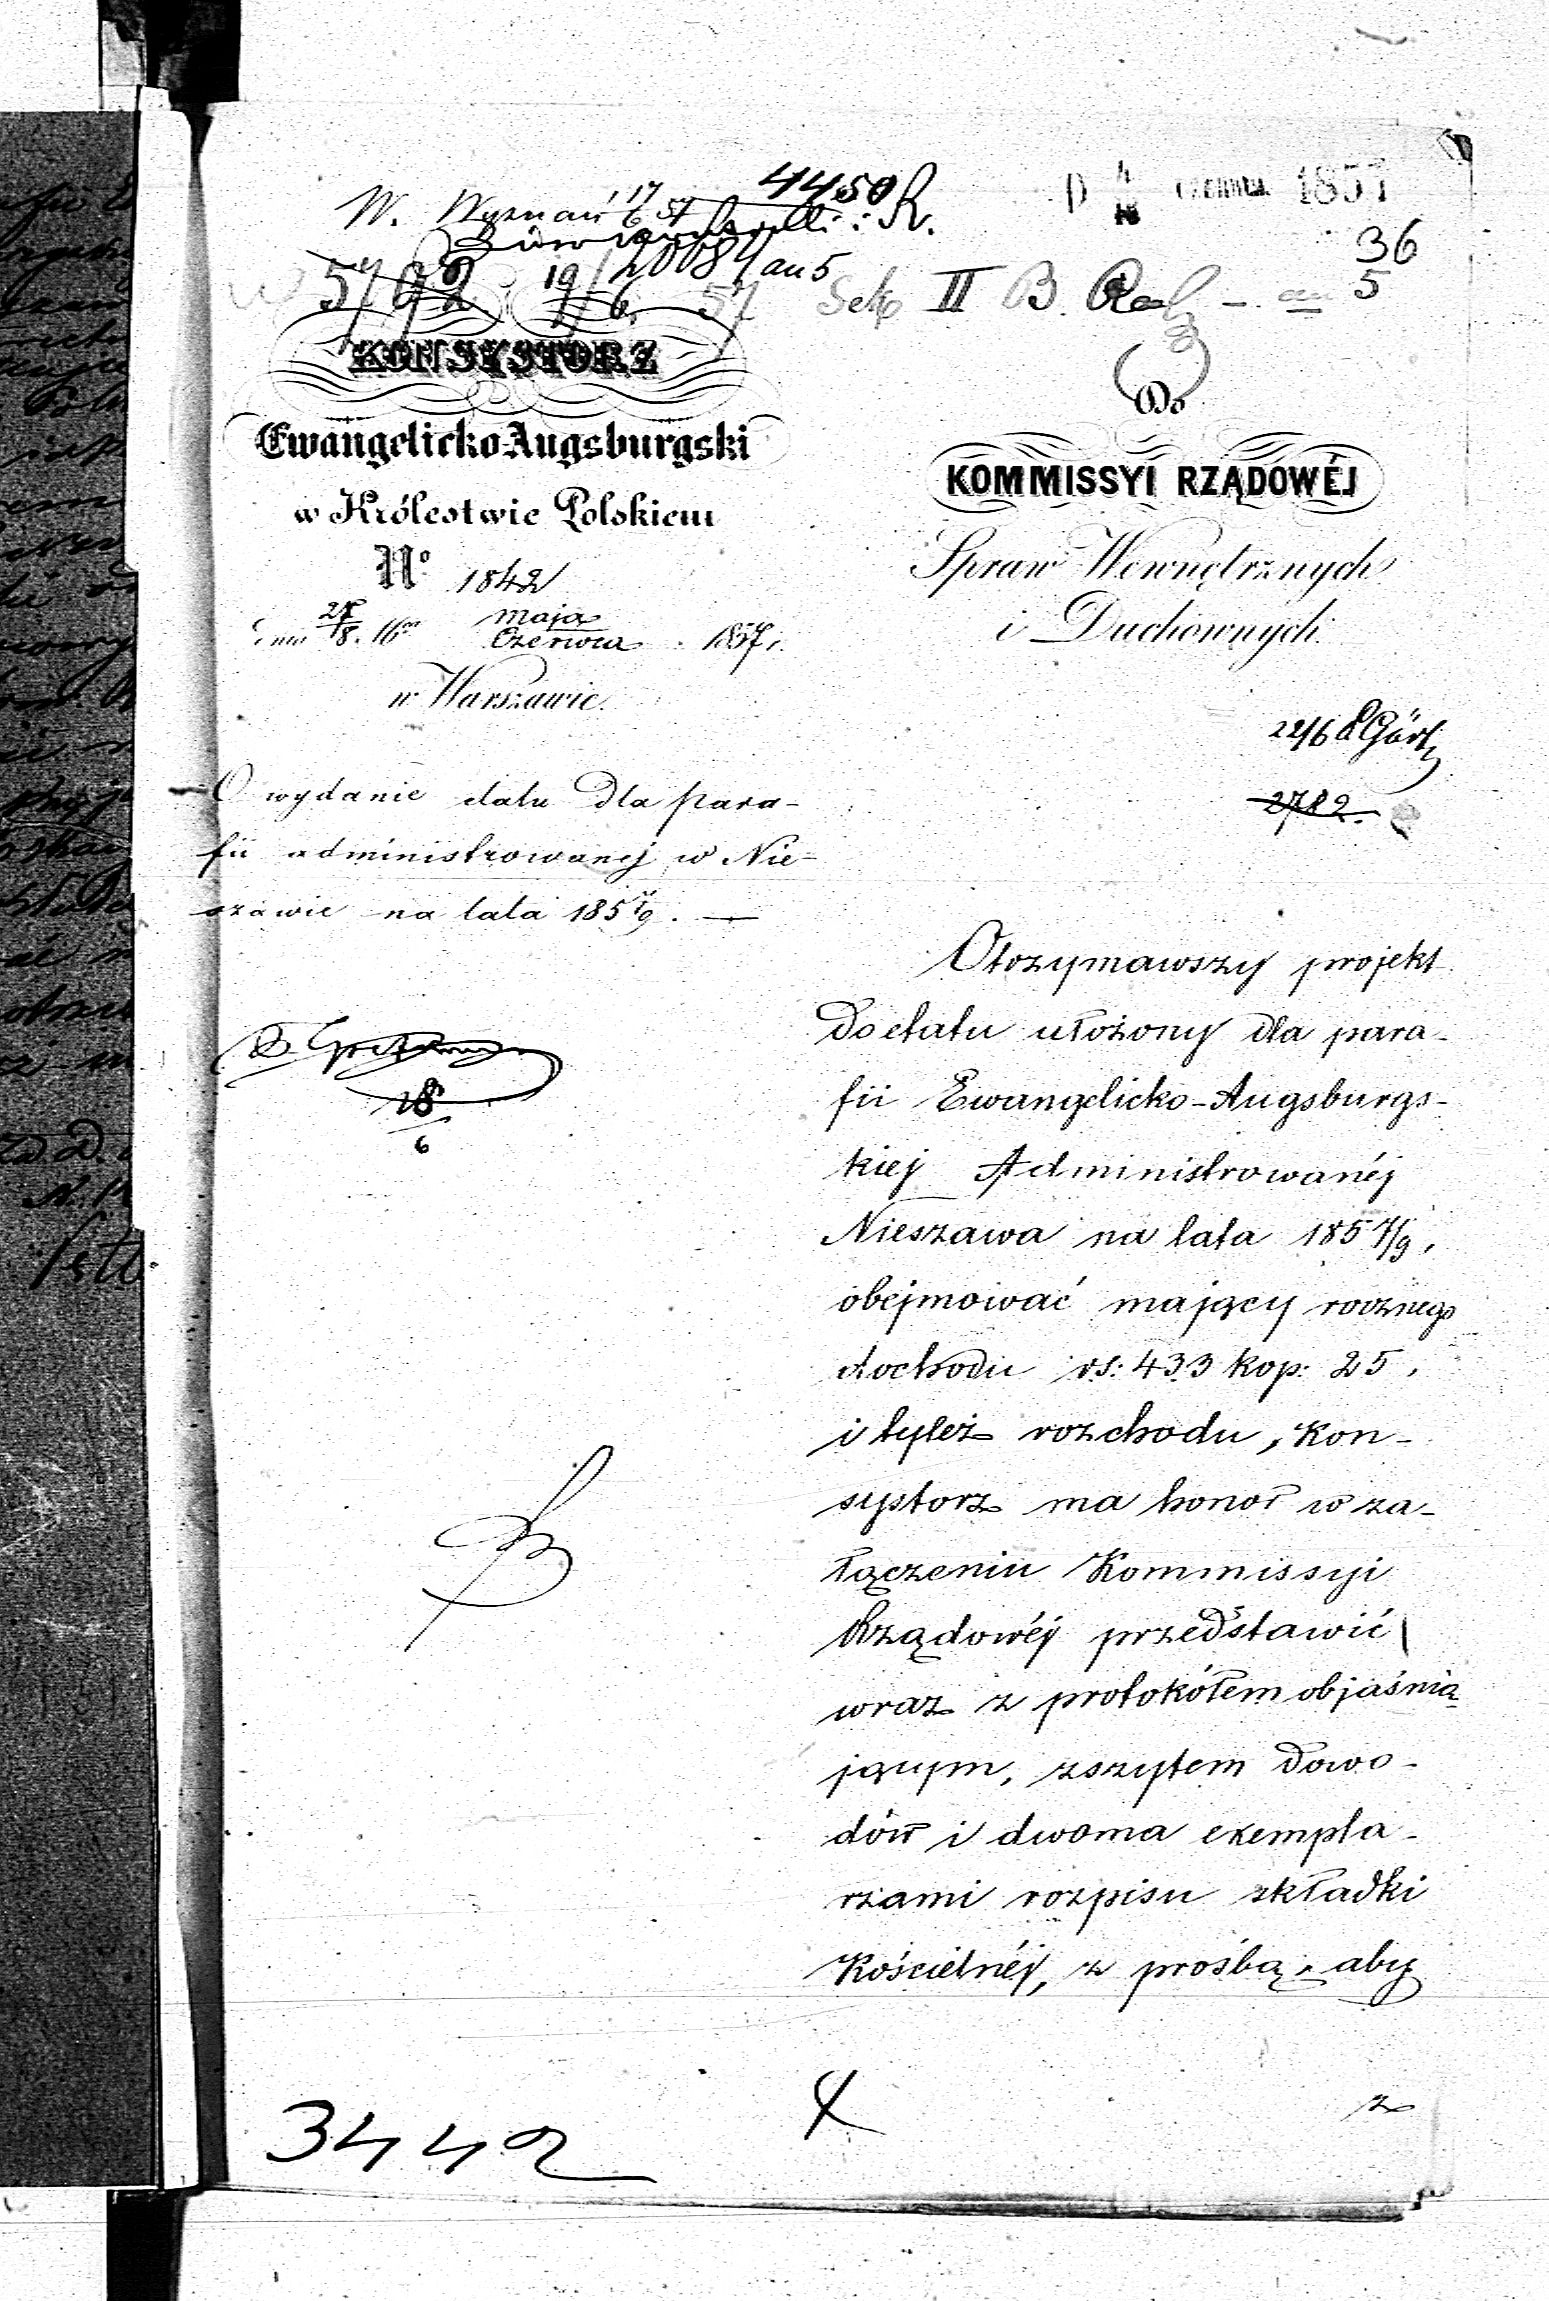 4450
W. Wyznań 17/6 57 R.
20084 au 5
5792 19/6 57 Sek II B. Ral - au 5
36
D 4/16 czerwca 1857
KONSYSTORZ
Ewangelicko-Augsburgski
w Królestwie Polskiem
No 1842
dnia 16go maja
8 Czerwca 1857 r.
w Warszawie.
Do
KOMMISSYI RZĄDOWÉJ
Spraw Wewnętrznych
i Duchownych
22/6
2782.
O wydanie etatu dla para-
fii administrowanej w Nie-
szawie na lata 1857/9. —
18/6
Otrzymawszy projekt
do etatu ułożony dla para-
fii Ewangelicko-Augsburgs-
kiej Administrowanéj
Nieszawa na lata 1857/9,
obejmować mający rocznego
dochodu rs: 433 kop: 25,
i tyleż rozchodu, Kon-
systorz ma honor w za-
łączeniu Kommissyi
Rządowéj przedstawić
wraz z protokółem objaśnia
jącym, zszytem dowo-
dów i dwoma exempla-
rzami rozpisu składki
Kościelnéj, z prośbą, aby
z
3442